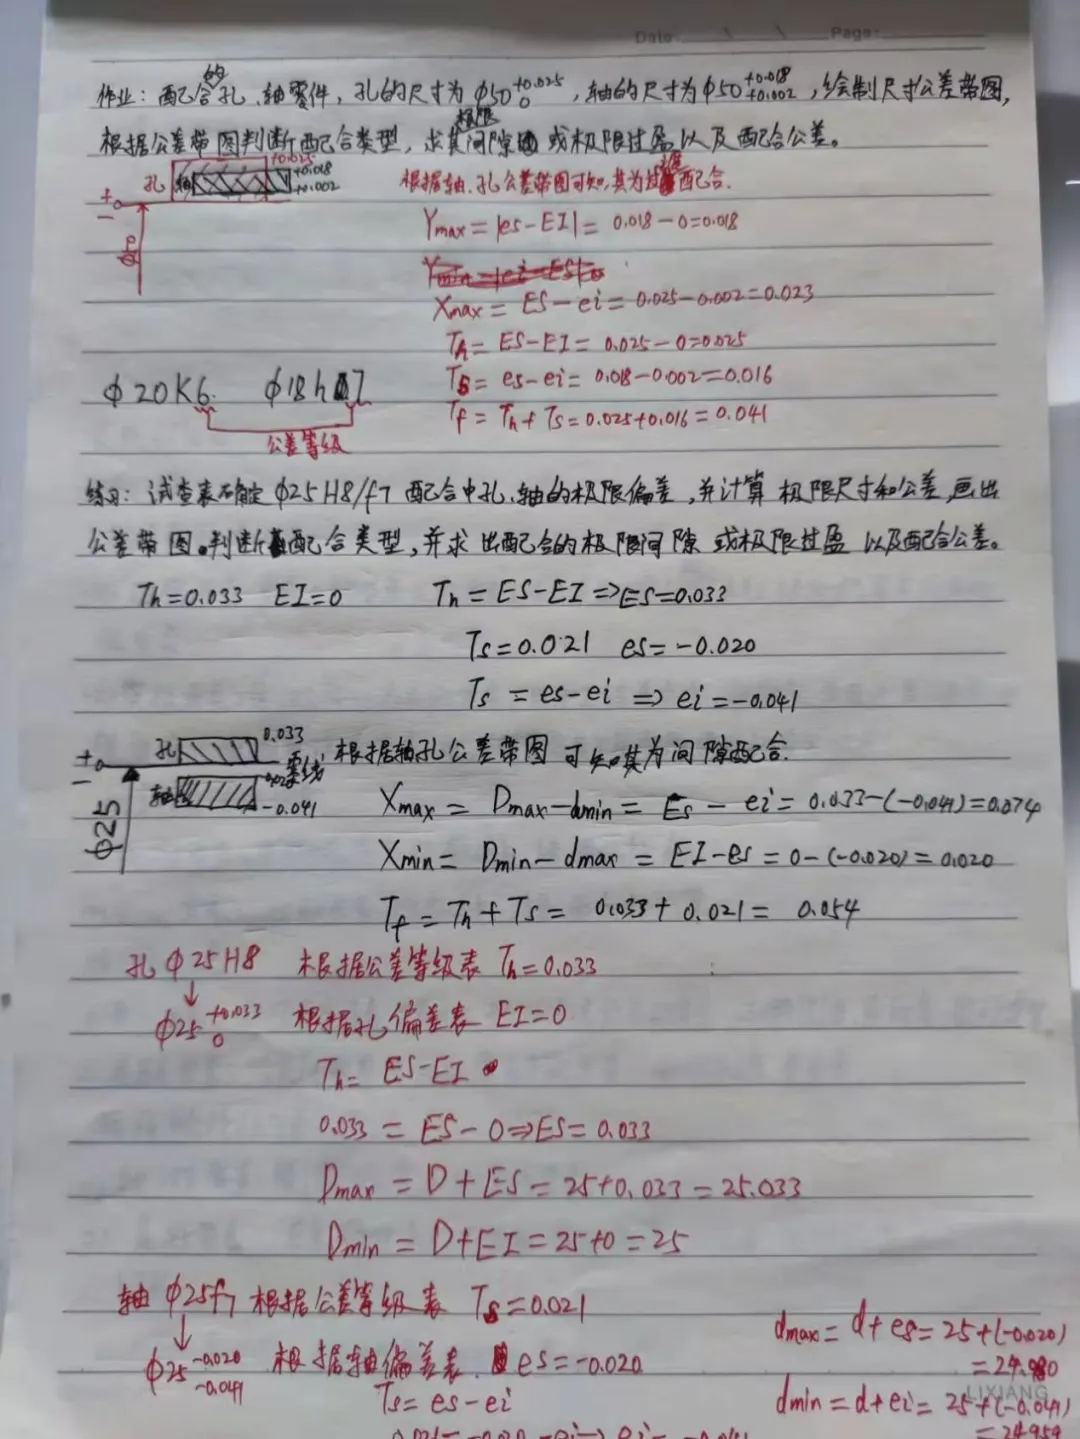 Date: \ \ Page:
作业：配合的孔、轴零件，孔的尺寸为 ϕ50 +0.025 0，轴的尺寸为ϕ50 +0.018 +0.002，绘制尺寸公差带图，
根据公差带图判断配合类型，求其极限间隙或极限过盈以及配合公差。
孔 轴 +0.025 +0.018 +0.002
+ 0 −
根据轴、孔公差带图可知，其为过渡配合.
Ymax = |es-EI| = 0.018-0=0.018
Ymin = |ei-ES|=
Xmax = ES-ei = 0.025-0.002=0.023
Th = ES-EI = 0.025-0=0.025
Ts = es-ei = 0.018-0.002=0.016
Tf = Th+Ts = 0.025+0.016=0.041
ϕ20K6 ϕ18h7
公差等级
练习：试查表确定 ϕ25H8/f7 配合中孔、轴的极限偏差，并计算极限尺寸和公差，画出
公差带图。判断其配合类型，并求出配合的极限间隙或极限过盈以及配合公差。
Th=0.033 EI=0 Th = ES-EI ⇒ES=0.033
Ts=0.021 es=-0.020
Ts = es-ei ⇒ ei=-0.041
孔 0.033 零线
+ 0 −
轴 -0.041
ϕ25
根据轴孔公差带图可知其为间隙配合.
Xmax = Dmax-dmin = Es-ei = 0.033-(-0.041)=0.074
Xmin = Dmin-dmax = EI-es = 0-(-0.020)=0.020
Tf = Th+Ts = 0.033+0.021= 0.054
孔 ϕ25H8 根据公差等级表 Th=0.033
↓
ϕ25 +0.033 0 根据孔偏差表 EI=0
Th = ES-EI
0.033 = ES-0⇒ES=0.033
Dmax = D+ES = 25+0.033=25.033
Dmin = D+EI = 25+0=25
轴 ϕ25f7 根据公差等级表 Ts=0.021
↓
ϕ25 -0.020 -0.041 根据轴偏差表 es=-0.020
Ts=es-ei
0.021=-0.020-ei⇒ei=-0.041
dmax= d+es=25+(-0.020)
=24.980
dmin = d+ei = 25+(-0.041)
=24.959
LIXIANG